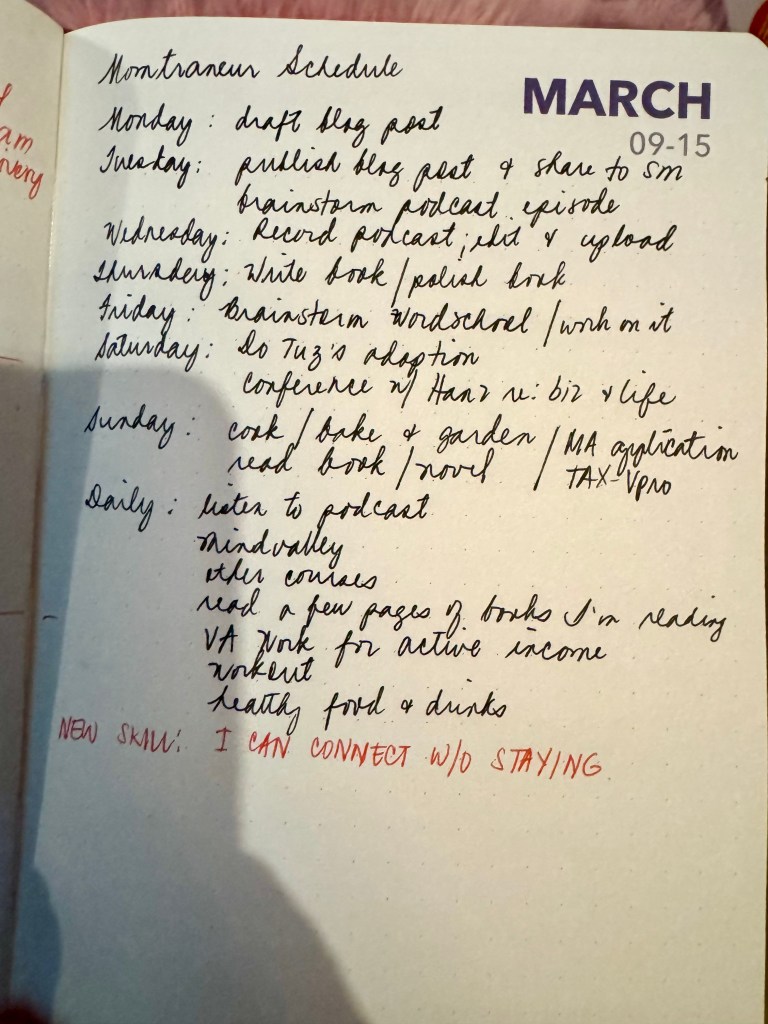 Momtraneur Schedule
MARCH
09-15
Monday : draft blog post
Tuesday: publish blog post & share to sm
brainstorm podcast episode
Wednesday: Record podcast; edit & upload
Thursday: Write book / polish book
Friday: Brainstorm Wordschool / work on it
Saturday: Do Tuz's adoption
conference w/ Hanz re: biz & life
Sunday: cook / bake & garden / MA application
read book / novel / TAX-Vpro
Daily: listen to podcast
mindvalley
other courses
read a few pages of books I'm reading
VA work for active income
workout
healthy food & drinks
NEW SKILL: I CAN CONNECT W/O STAYING
am